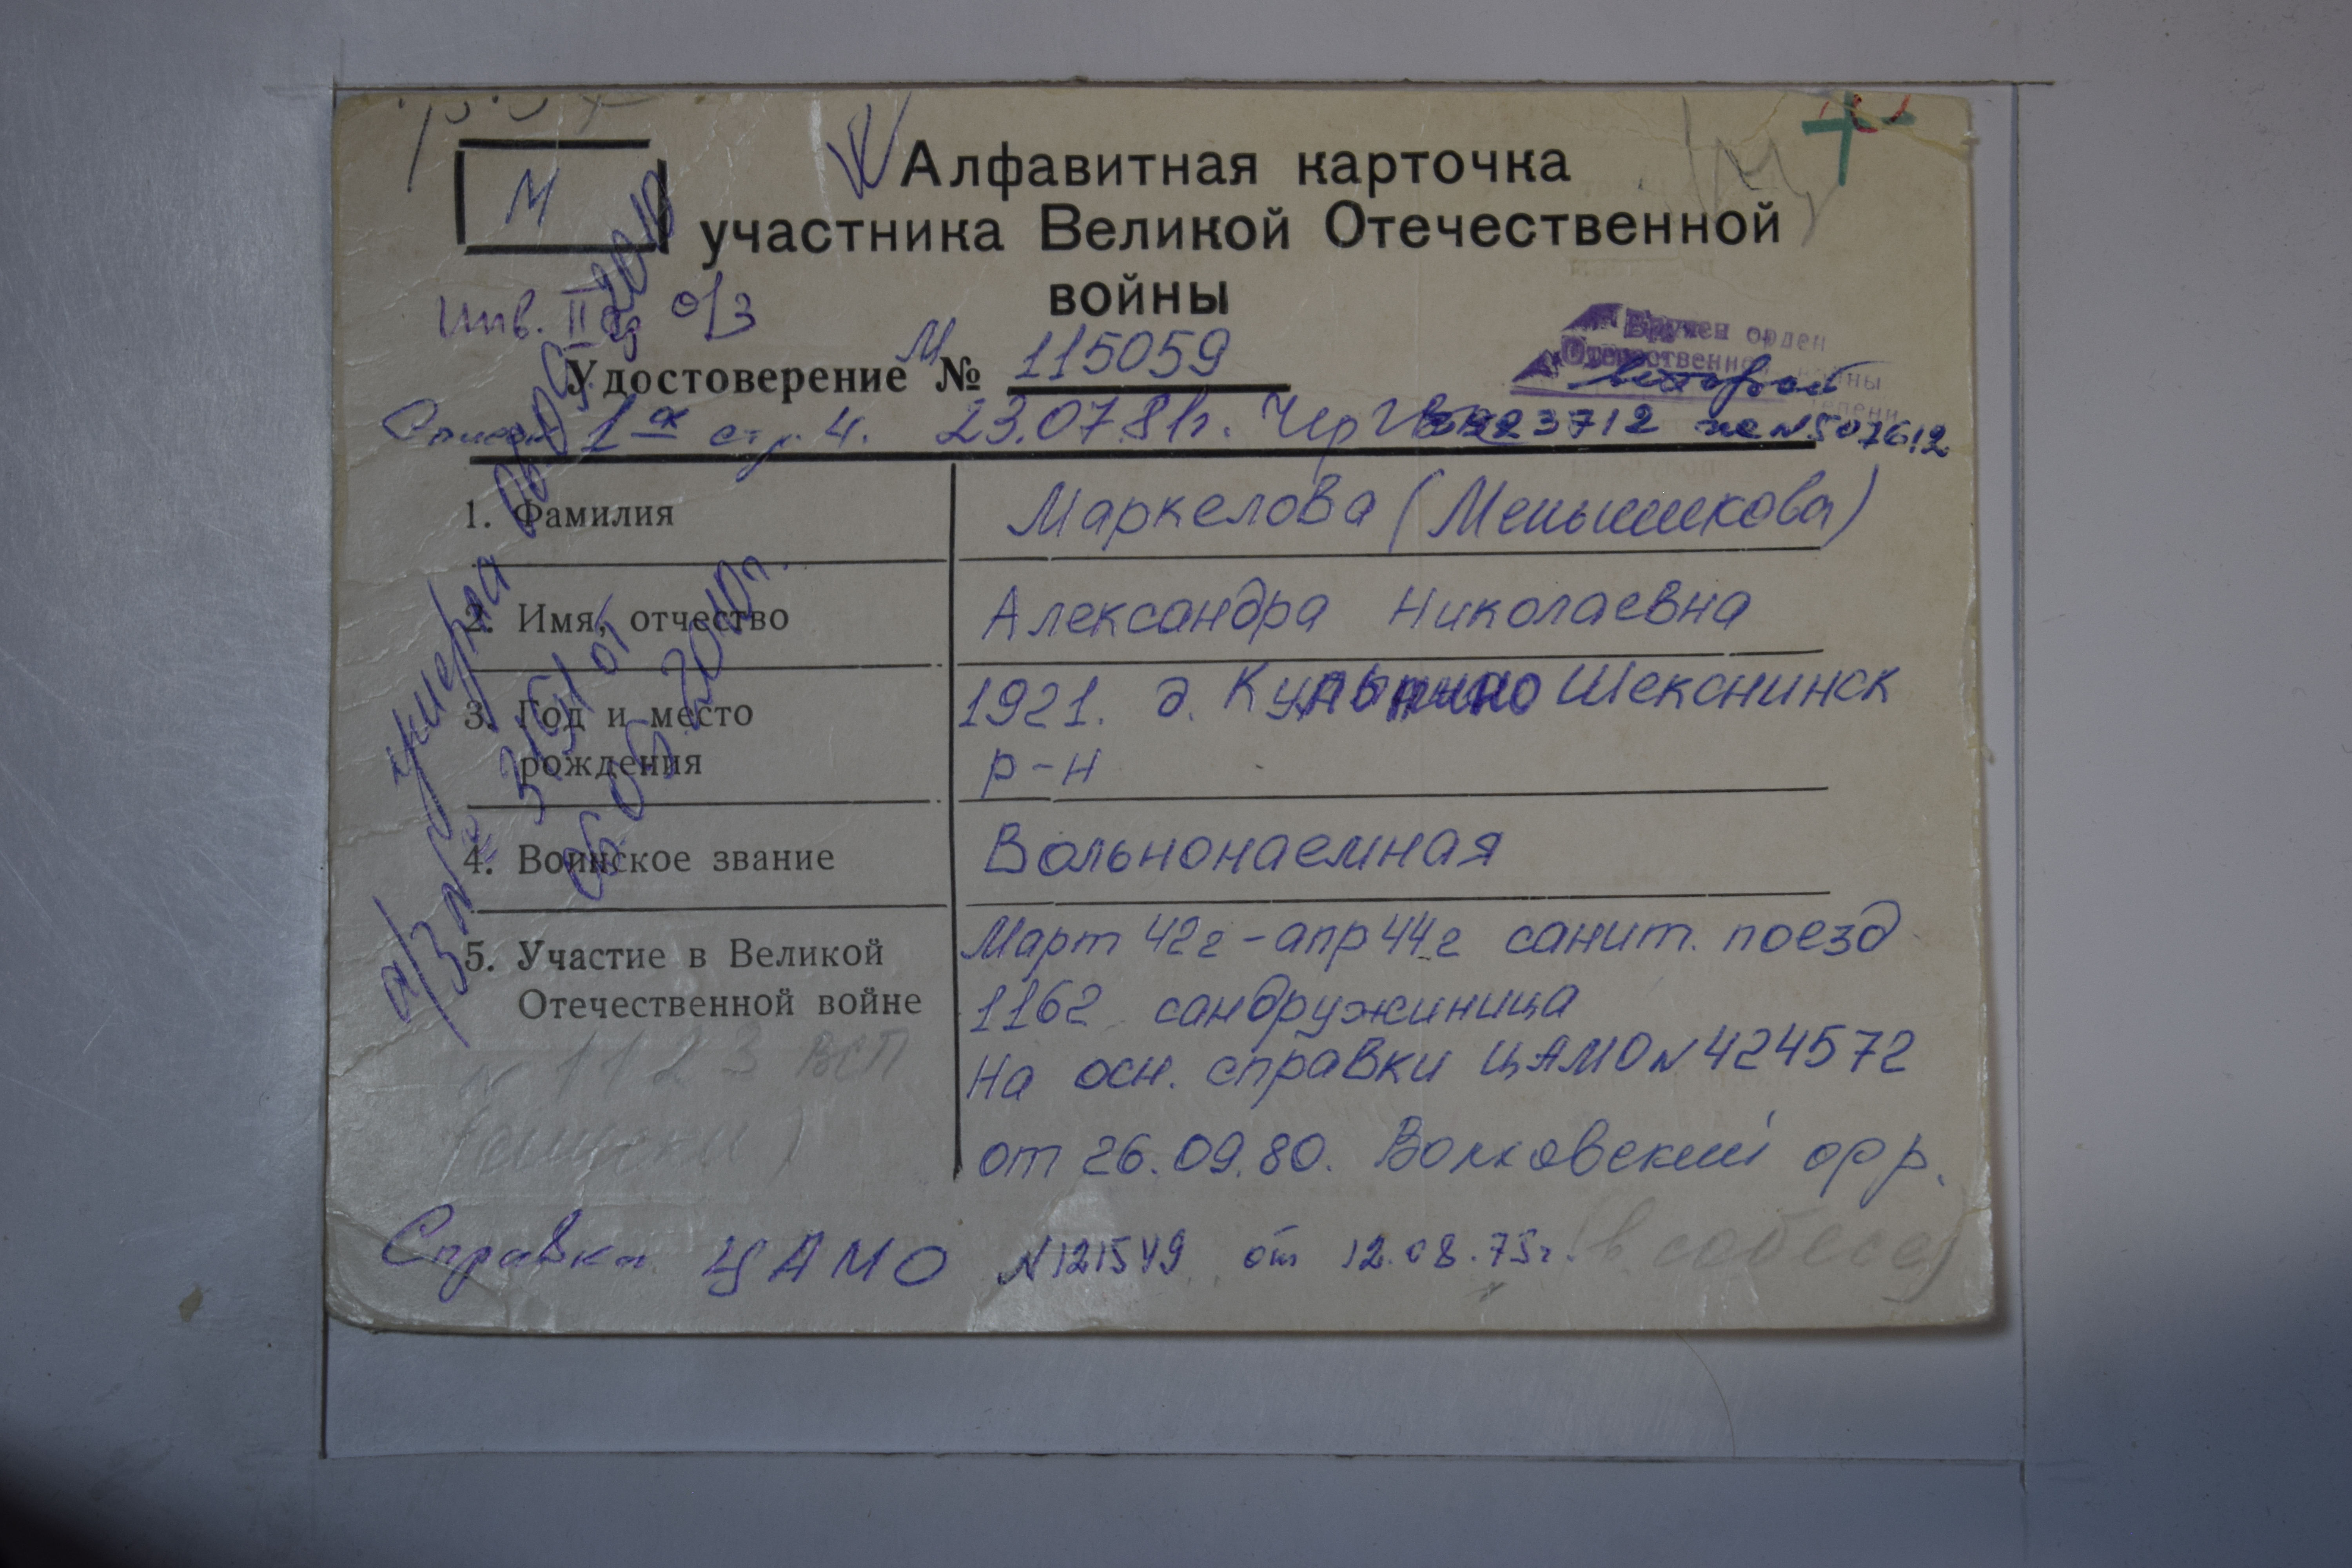 М
Алфавитная карточка
участника Великой Отечественной
войны
Инв. II гр о/з
Вручен орден
Отечественной войны
второй степени
Удостоверение № М 115059
Список 1а стр. 4. 23.07.81г. Чер ГВК
3923712 не N 507612
1. Фамилия Маркелова (Меньшикова)
2. Имя, отчество Александра Николаевна
3. Год и место рождения 1921. д. Шекснинск
р-н
4. Воинское звание Вольнонаемная
5. Участие в Великой Отечественной войне Март 42г - апр 44г санит. поезд
1162 сандружиница
На осн. справки ЦАМО N 424572
от 26.09.80. Волховский фр.
N 1123 ВСП
Справка ЦАМО N 121549 от 12.08.75г. (в собесе)
умерла 2010
а/з № 3151 от
2010г.